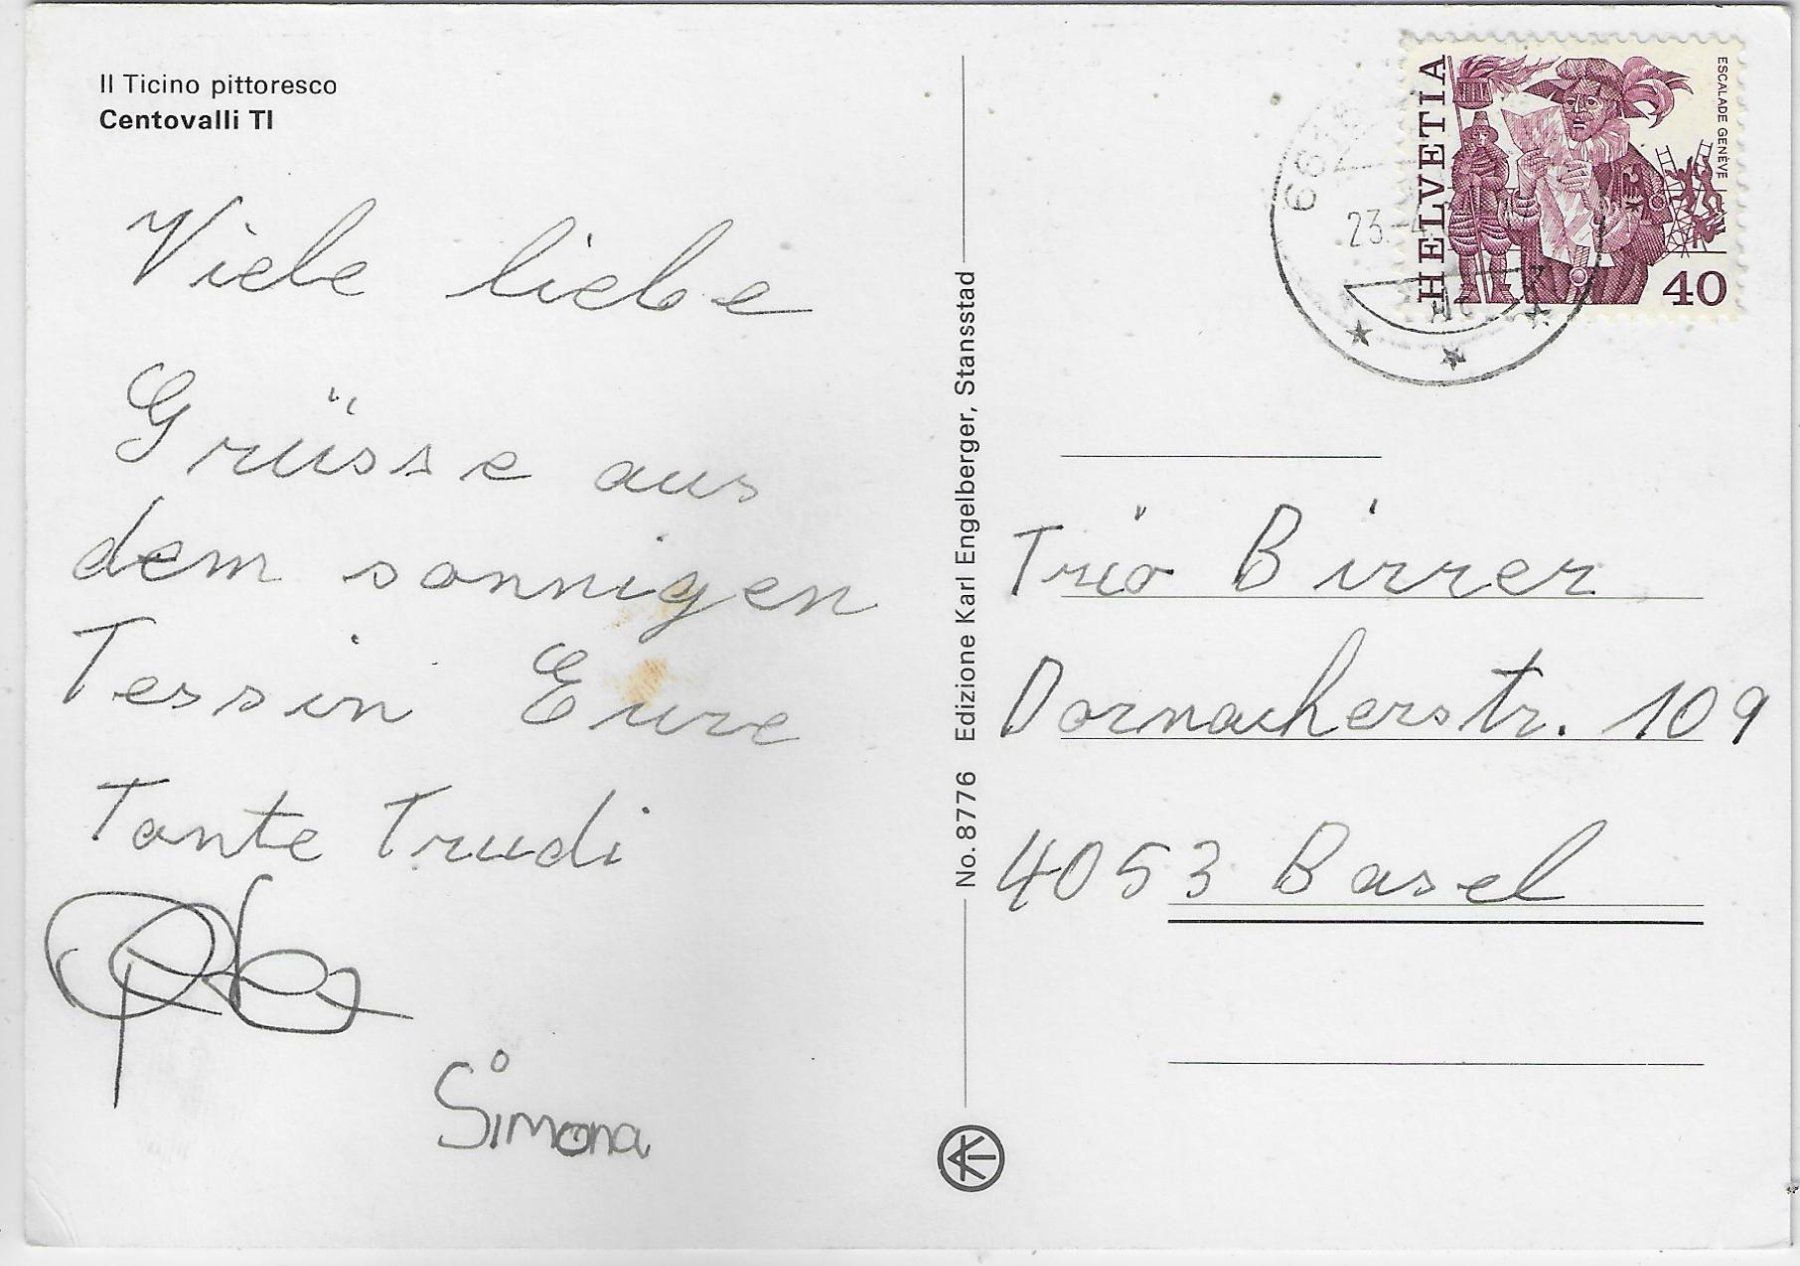 Il Ticino pittoresco
Centovalli TI
Viele liebe
Grüsse aus
dem sonnigen
Tessin Eure
Tante Trudi
Simona
No. 8776 Edizione Karl Engelberger, Stansstad
HELVETIA
ESCALADE GENÈVE
40
23.
Trio Birrer
Dornacherstr. 109
4053 Basel